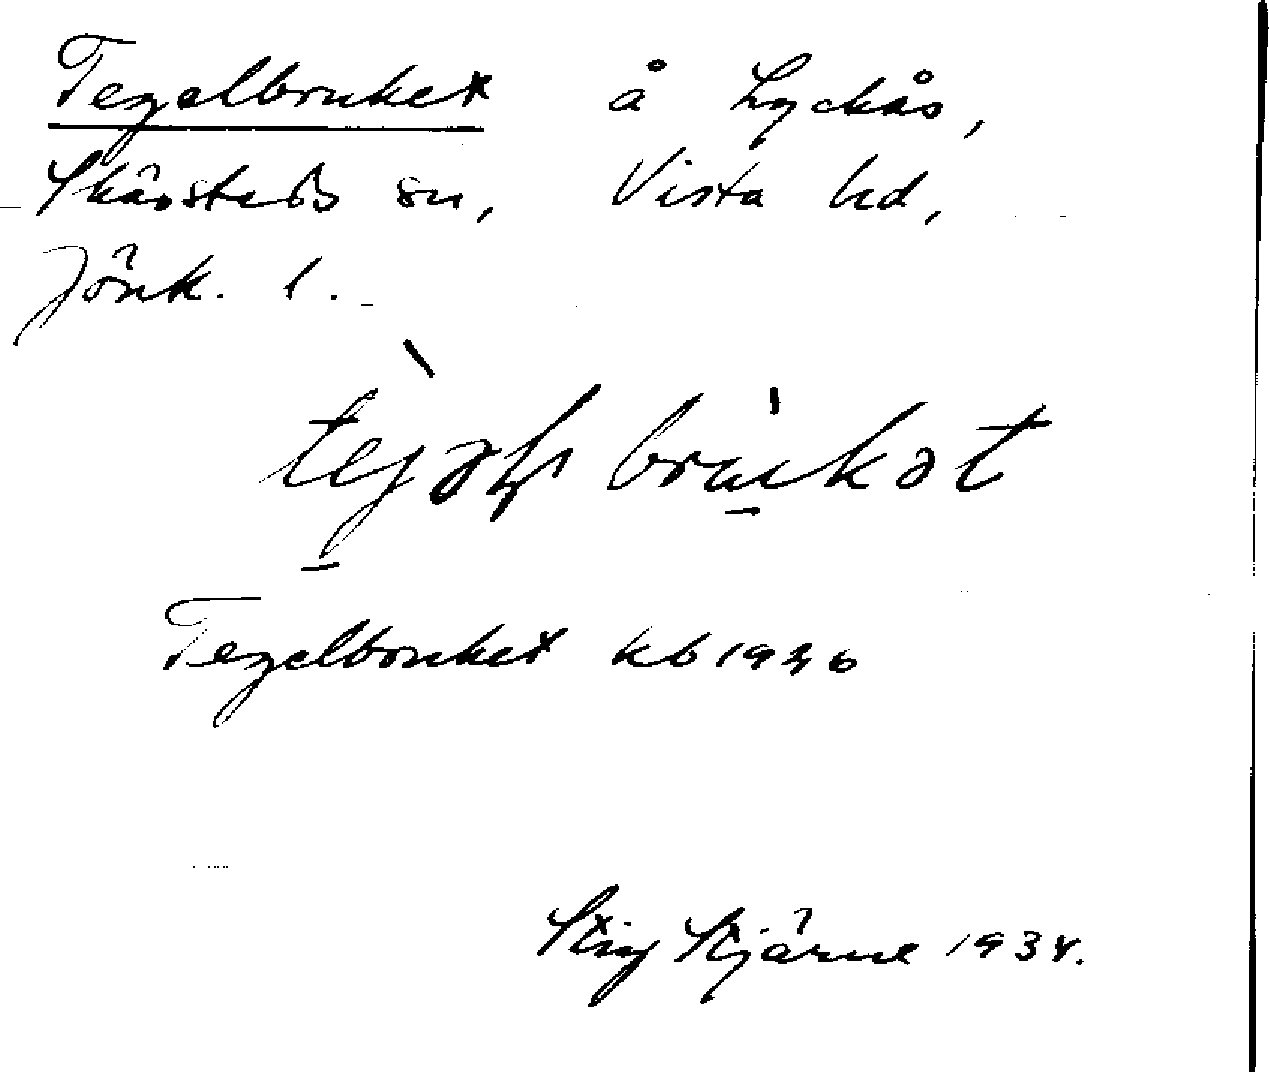 Tegelbruket å Lyckås,
Skärstads sn, Vista hd,
Jönk. l.
Tegelbruket kb 1936
Stig Stjärne 1938.